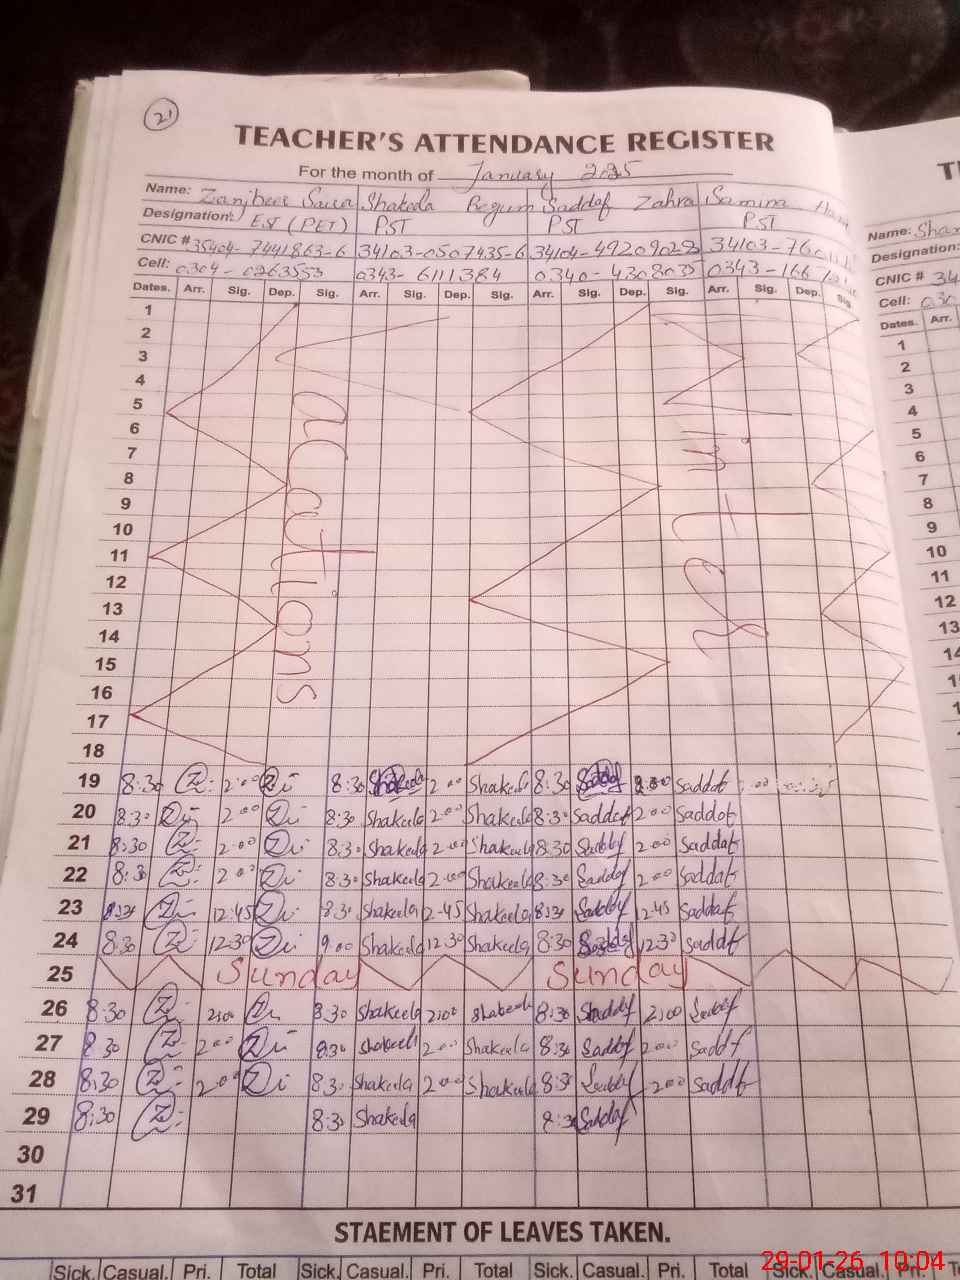 21
TEACHER'S ATTENDANCE REGISTER
For the month of January 2025
Name: Shakeela Begum Saddaf Zahra Samina
Designation: EST (PET) PST PST PST
CNIC # 35404-7441863-6 34103-0507435-6 34104-4920902-8 34103-760
Cell: 0304-0263553 0343-6111384 0340-4308035 0343-166
Dates. Arr. Sig. Dep. Sig. Arr. Sig. Dep. Sig. Arr. Sig. Dep. Sig. Arr. Sig. Dep. Sig.
1
2
3
4
5
6
7
8
9
10
11
12
13
14
15
16
17
18
Winter
Vacations
19 8:30 2:00 8:30 Shakeela 2:00 Shakeela 8:30 Saddaf 2:00 Saddaf
20 8:30 2:00 8:30 Shakeela 2:00 Shakeela 8:30 Saddaf 2:00 Saddaf
21 8:30 2:00 8:30 Shakeela 2:00 Shakeela 8:30 Saddaf 2:00 Saddaf
22 8:30 2:00 8:30 Shakeela 2:00 Shakeela 8:30 Saddaf 2:00 Saddaf
23 8:30 12:45 8:30 Shakeela 2-45 Shakeela 8:30 Saddaf 12:45 Saddaf
24 8:30 12:30 9:00 Shakeela 12:30 Shakeela 8:30 Saddaf 12:30 Saddaf
25 Sunday Sunday
26 8:30 2:00 8:30 Shakeela 2:00 Shakeela 8:30 Saddaf 2:00 Saddaf
27 8:30 2:00 8:30 Shakeela 2:00 Shakeela 8:30 Saddaf 2:00 Saddaf
28 8:30 2:00 8:30 Shakeela 2:00 Shakeela 8:30 Saddaf 2:00 Saddaf
29 8:30 8:30 Shakeela 8:30 Saddaf
30
31
STAEMENT OF LEAVES TAKEN.
Sick. Casual. Pri. Total Sick. Casual. Pri. Total Sick. Casual. Pri. Total Sick. Casual. Pri.
Name: Shan
Designation:
CNIC # 34
Cell: 030
Dates. Arr.
1
2
3
4
5
6
7
8
9
10
11
12
13
14
29-01-26 10:04